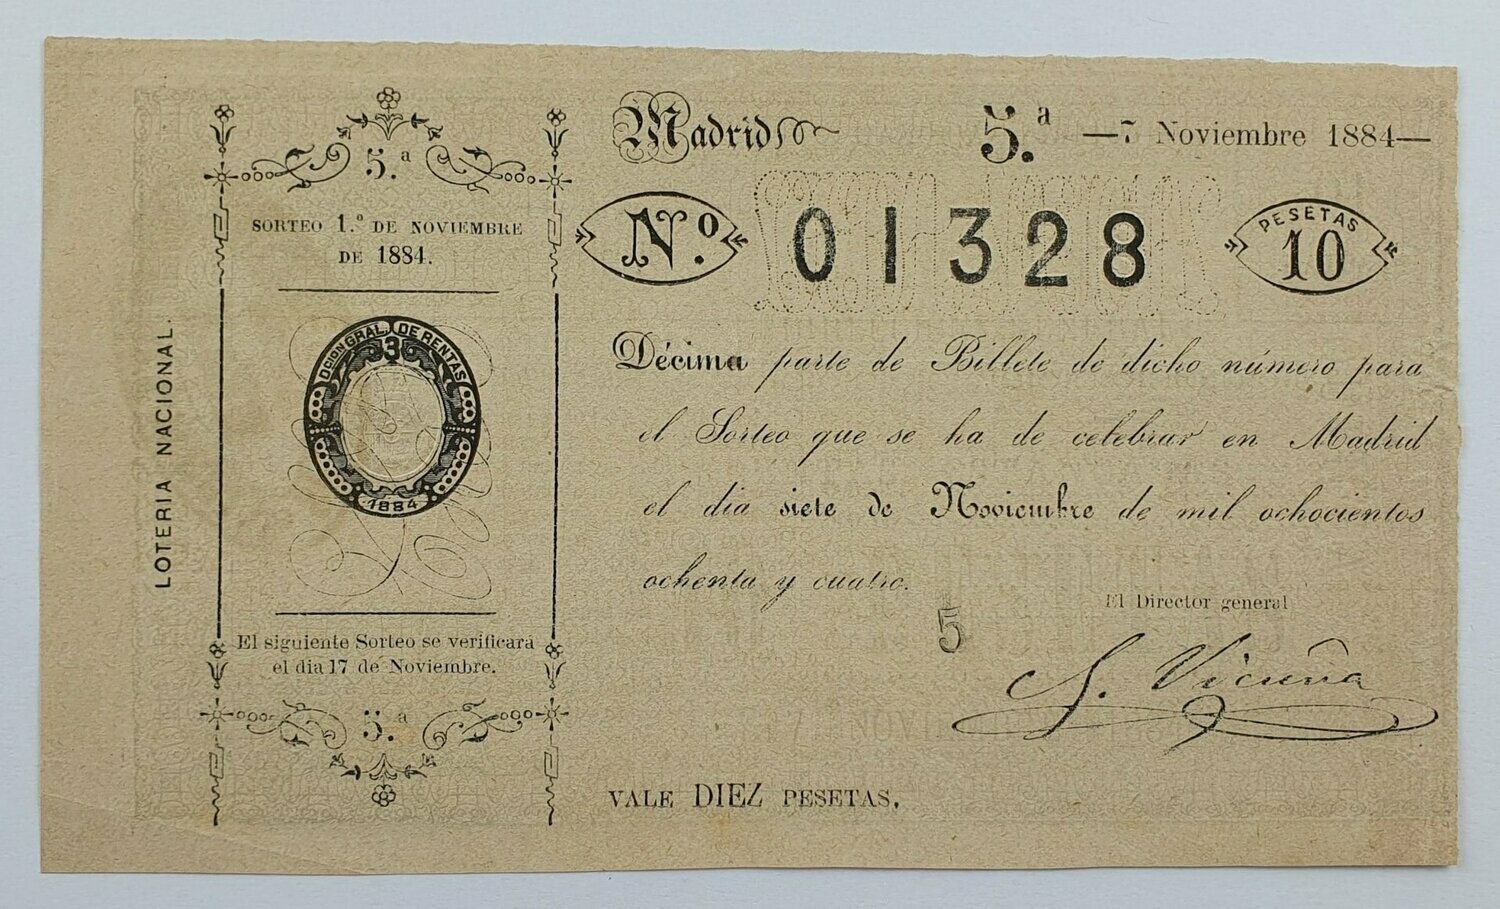 LOTERIA NACIONAL.
5.ª
SORTEO 1.º DE NOVIEMBRE
DE 1884.
Dcion GRAL. DE RENTAS
3
1884
El siguiente Sorteo se verificará
el dia 17 de Noviembre.
5.ª
Madrid 5.ª —7 Noviembre 1884—
N.º 01328 PESETAS 10
Décima parte de Billete de dicho número para
el Sorteo que se ha de celebrar en Madrid
el dia siete de Noviembre de mil ochocientos
ochenta y cuatro.
5
El Director general
S. Vicuña
VALE DIEZ PESETAS.